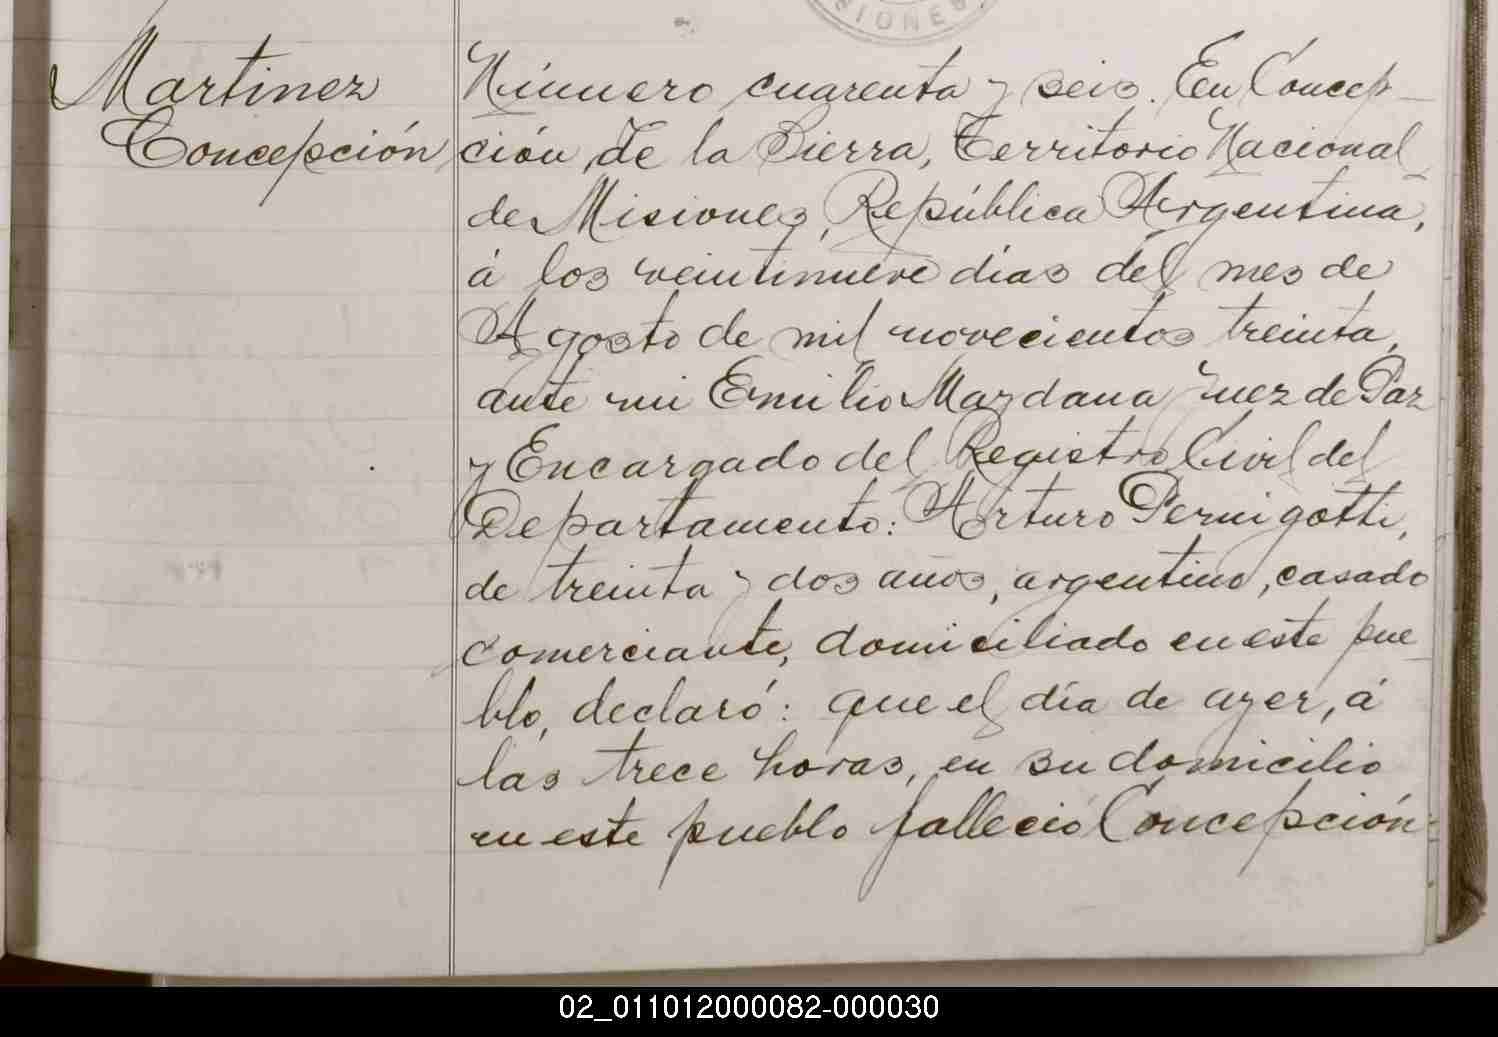 SIONES
Martinez
Concepción
Número cuarenta y seis. En Concep-
ción de la Sierra, Territorio Nacional
de Misiones, República Argentina,
á los veintinueve días del mes de
Agosto de mil novecientos treinta,
ante mi Emilio Maydana Juez de Paz
y Encargado del Registro Civil del
Departamento: Arturo Pernigotti,
de treinta y dos años, argentino, casado
comerciante, domiciliado en este pue-
blo, declaró: que el día de ayer, á
las trece horas, en su domicilio
en este pueblo falleció Concepción
02_011012000082-000030